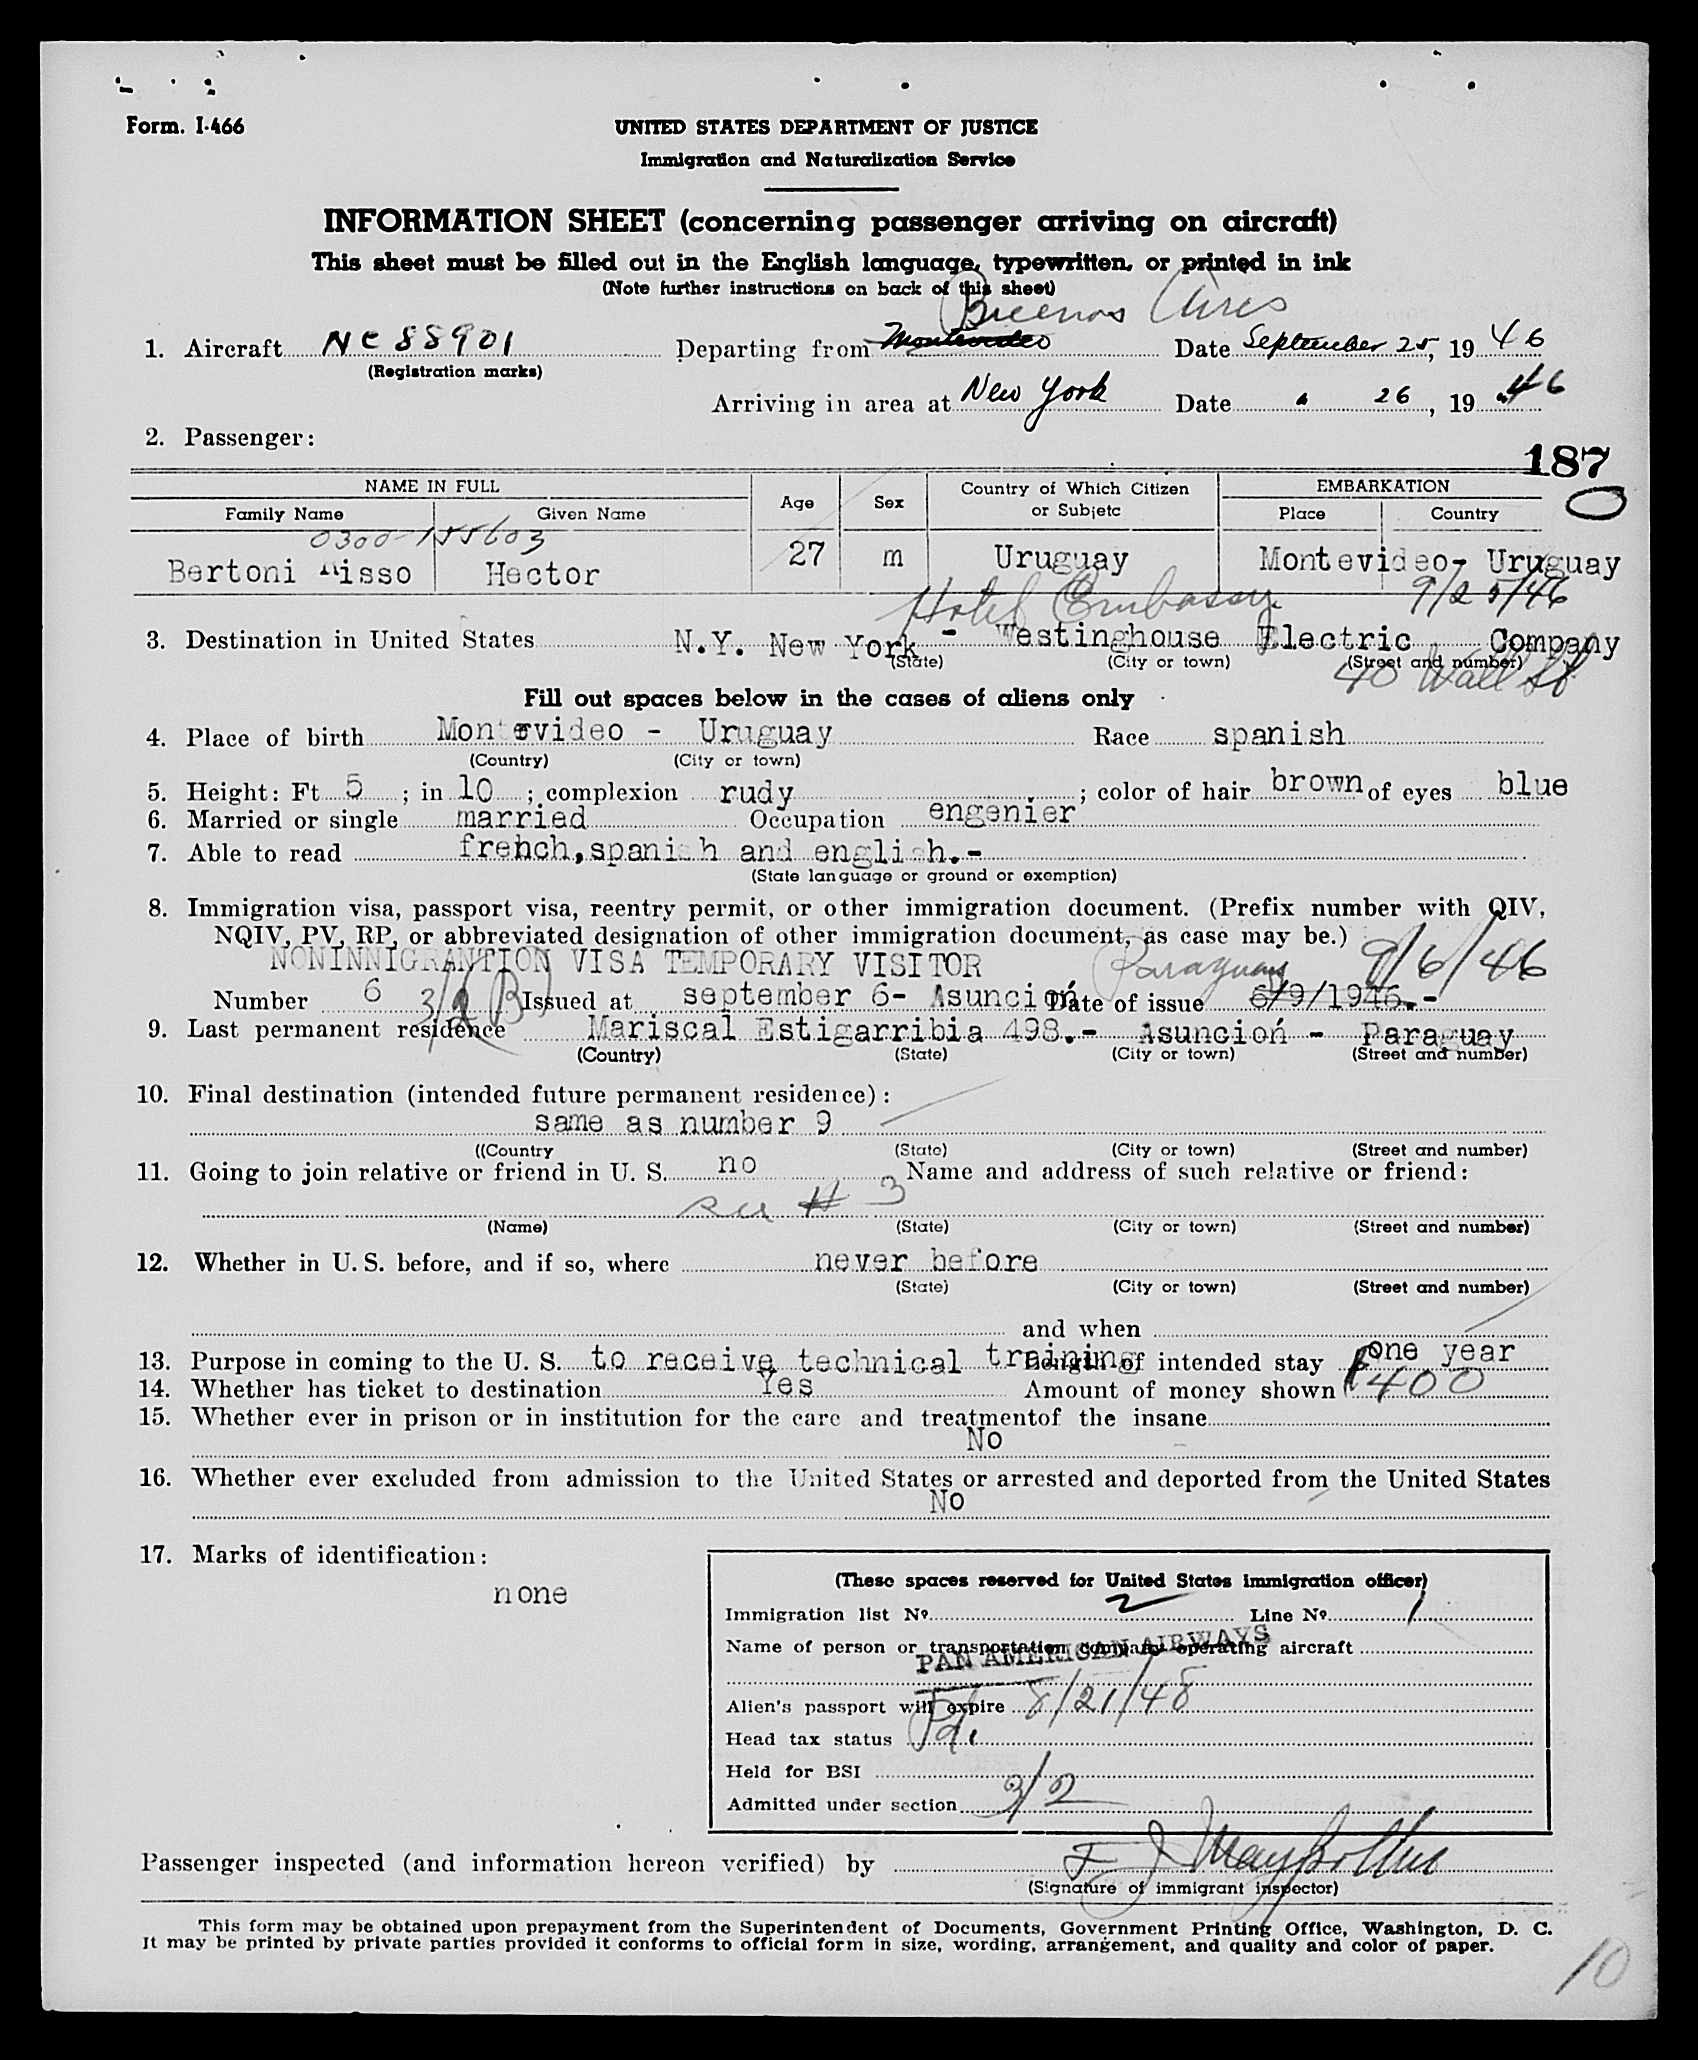 Form. I-466
UNITED STATES DEPARTMENT OF JUSTICE
Immigration and Naturalization Service
INFORMATION SHEET (concerning passenger arriving on aircraft)
This sheet must be filled out in the English language, typewritten, or printed in ink
(Note further instructions on back of this sheet)
Buenos Aires
1. Aircraft NC 88901 Departing from Montevideo Date September 25, 19 46
(Registration marks)
Arriving in area at New York Date " 26, 19 46
2. Passenger:
187
NAME IN FULL Age Sex Country of Which Citizen or Subjetc EMBARKATION
Family Name Given Name Place Country
0300-155603
Bertoni Risso Hector 27 m Uruguay Montevideo- Uruguay
Hotel Embassy 9/25/46
3. Destination in United States N.Y. New York - Westinghouse Electric Company
(State) (City or town) (Street and number)
40 Wall St
Fill out spaces below in the cases of aliens only
4. Place of birth Montevideo - Uruguay Race spanish
(Country) (City or town)
5. Height: Ft 5 ; in 10 ; complexion rudy ; color of hair brown of eyes blue
6. Married or single married Occupation engenier
7. Able to read french, spanish and english.-
(State language or ground or exemption)
8. Immigration visa, passport visa, reentry permit, or other immigration document. (Prefix number with QIV,
NQIV, PV, RP, or abbreviated designation of other immigration document, as case may be.)
NONINNIGRANTION VISA TEMPORARY VISITOR Paraguay 9/6/46
Number 6 3/2 (B) Issued at september 6- Asunción Date of issue 6/9/1946.-
9. Last permanent residence Mariscal Estigarribia 498.- Asunción - Paraguay
(Country) (State) (City or town) (Street and number)
10. Final destination (intended future permanent residence):
same as number 9
((Country (State) (City or town) (Street and number)
11. Going to join relative or friend in U. S. no Name and address of such relative or friend:
see # 3
(Name) (State) (City or town) (Street and number)
12. Whether in U. S. before, and if so, where never before
(State) (City or town) (Street and number)
and when
13. Purpose in coming to the U. S. to receive technical training Length of intended stay one year
14. Whether has ticket to destination Yes Amount of money shown $400
15. Whether ever in prison or in institution for the care and treatmentof the insane
No
16. Whether ever excluded from admission to the United States or arrested and deported from the United States
No
17. Marks of identification:
none
(These spaces reserved for United States immigration officer)
Immigration list Nº 2 Line Nº 1
Name of person or transportation company operating aircraft
PAN AMERICAN AIRWAYS
Alien's passport will expire 8/21/48
Head tax status Pd.
Held for BSI
Admitted under section 3/2
Passenger inspected (and information hereon verified) by
(Signature of immigrant inspector)
This form may be obtained upon prepayment from the Superintendent of Documents, Government Printing Office, Washington, D. C.
It may be printed by private parties provided it conforms to official form in size, wording, arrangement, and quality and color of paper.
10